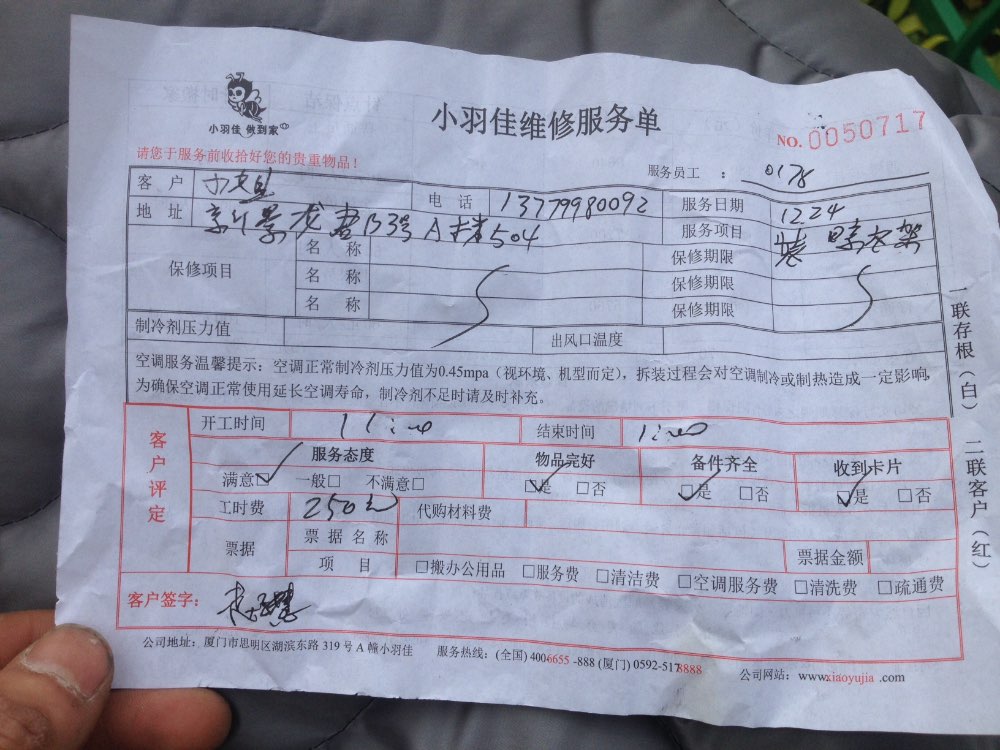 小羽佳 做到家
小羽佳维修服务单
NO. 0050717
请您于服务前收拾好您的贵重物品！
服务员工 ： 0178
客 户 电 话 13779980092 服务日期 1224
地 址 景龙 B3号A栋504 服务项目 装 晾衣架
保修项目 名 称 保修期限
名 称 保修期限
名 称 保修期限
制冷剂压力值 出风口温度
空调服务温馨提示：空调正常制冷剂压力值为0.45mpa（视环境、机型而定），拆装过程会对空调制冷或制热造成一定影响，
为确保空调正常使用延长空调寿命，制冷剂不足时请及时补充。
客户评定
开工时间 11:00 结束时间 1:00
服务态度 物品完好 备件齐全 收到卡片
满意☑ 一般□ 不满意□ ☑是 □否 ☑是 □否 ☑是 □否
工时费 250元 代购材料费
票据 票据名称
项 目 □搬办公用品 □服务费 □清洁费 □空调服务费 □清洗费 □疏通费
票据金额
客户签字：
公司地址：厦门市思明区湖滨东路 319 号 A 幢小羽佳 服务热线：(全国) 4006655 -888 (厦门) 0592-5178888 公司网站：www.xiaoyujia .com
一联存根（白） 二联客户（红）